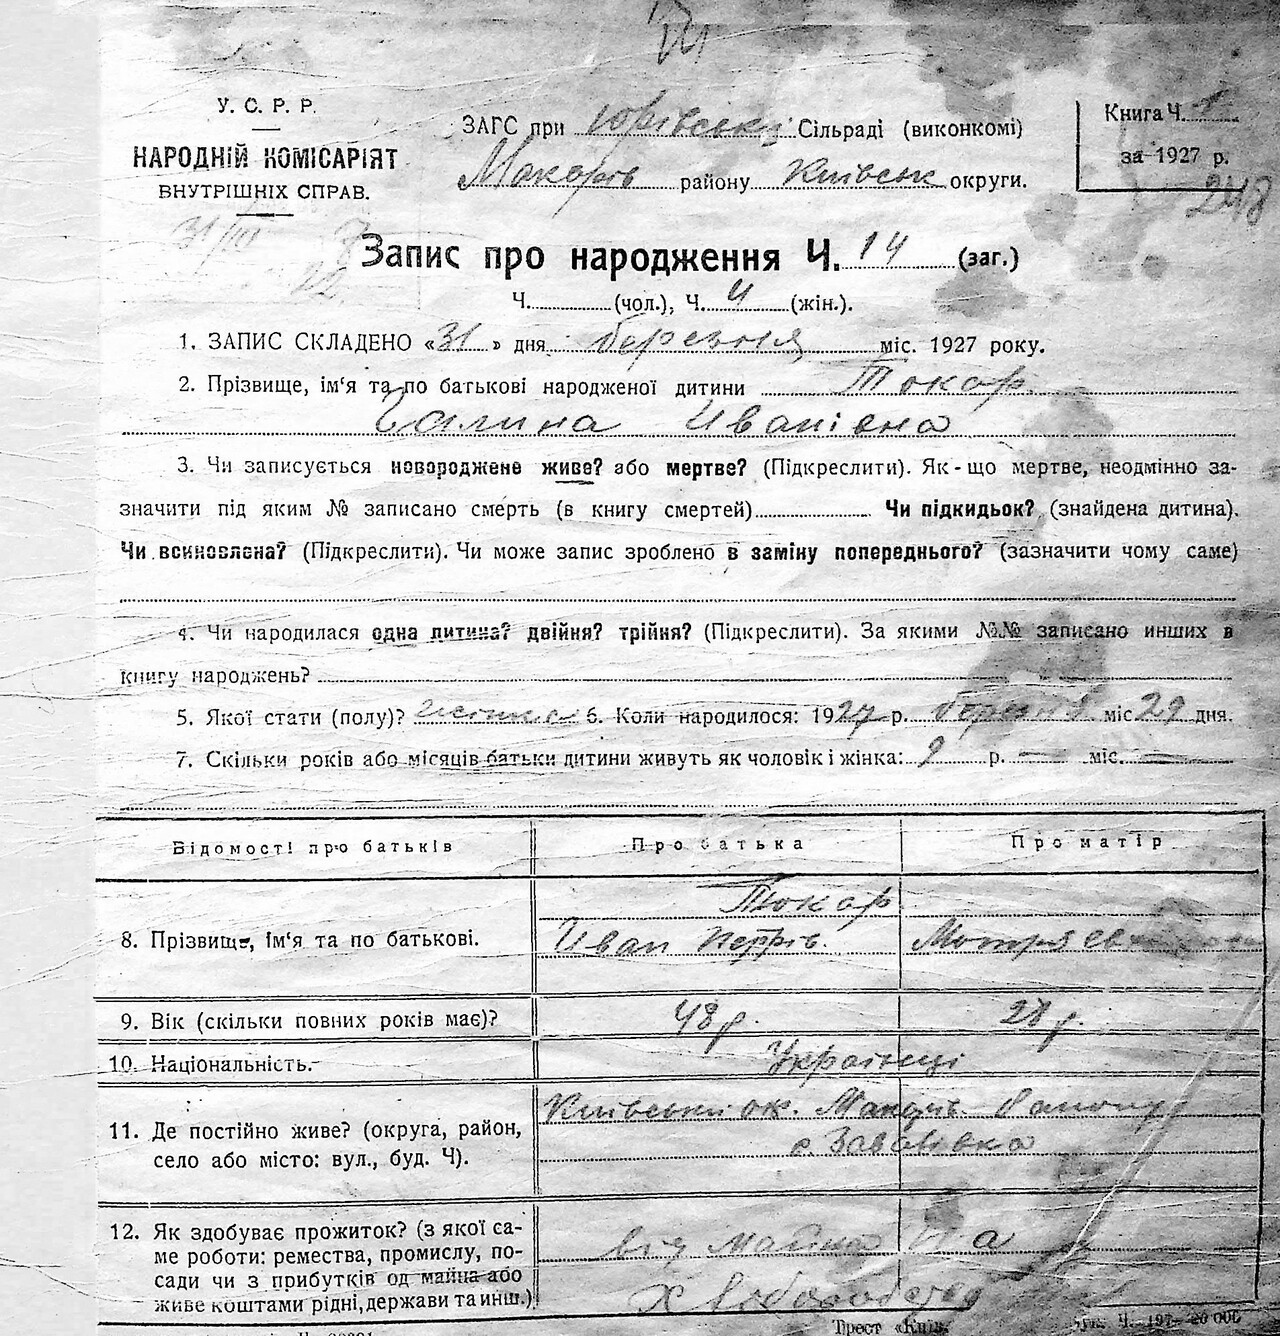 У. С. Р. Р.
НАРОДНІЙ КОМІСАРІЯТ
ВНУТРІШНІХ СПРАВ.
ЗАГС при Юрівські Сільраді (виконкомі)
Макарів району Київськ округи.
Книга Ч. 1
за 1927 р.
248
31/III
Запис про народження Ч. 14 (заг.)
Ч. (чол.), Ч. 4 (жін.).
1. ЗАПИС СКЛАДЕНО «31» дня березня міс. 1927 року.
2. Прізвище, ім'я та по батькові народженої дитини Токар
Галина Иванівна
3. Чи записується новороджене живе? або мертве? (Підкреслити). Як-що мертве, неодмінно за-
значити під яким № записано смерть (в книгу смертей) Чи підкидьок? (знайдена дитина).
Чи всиновлена? (Підкреслити). Чи може запис зроблено в заміну попереднього? (зазначити чому саме)
4. Чи народилася одна дитина? двійня? трійня? (Підкреслити). За якими №№ записано инших в
книгу народжень?
5. Якої стати (полу)? 6. Коли народилося: 1927 р. березня міс 29 дня.
7. Скільки років або місяців батьки дитини живуть як чоловік і жінка: 9 р. — міс. —
Відомості про батьків Про батька Про матір
Токар
8. Прізвище, ім'я та по батькові. Иван Петрів. Мотря
9. Вік (скільки повних років має)? 48 р. 28 р.
10. Національність. Українці
11. Де постійно живе? (округа, район,
село або місто: вул., буд. Ч).
Київськи ок. Макарів. Району
с. Завалівка
12. Як здобуває прожиток? (з якої са-
ме роботи: ремества, промислу, по-
сади чи з прибутків од майна або
живе коштами рідні, держави та инш.)
від майна
Хлібороб
Трест «Київ